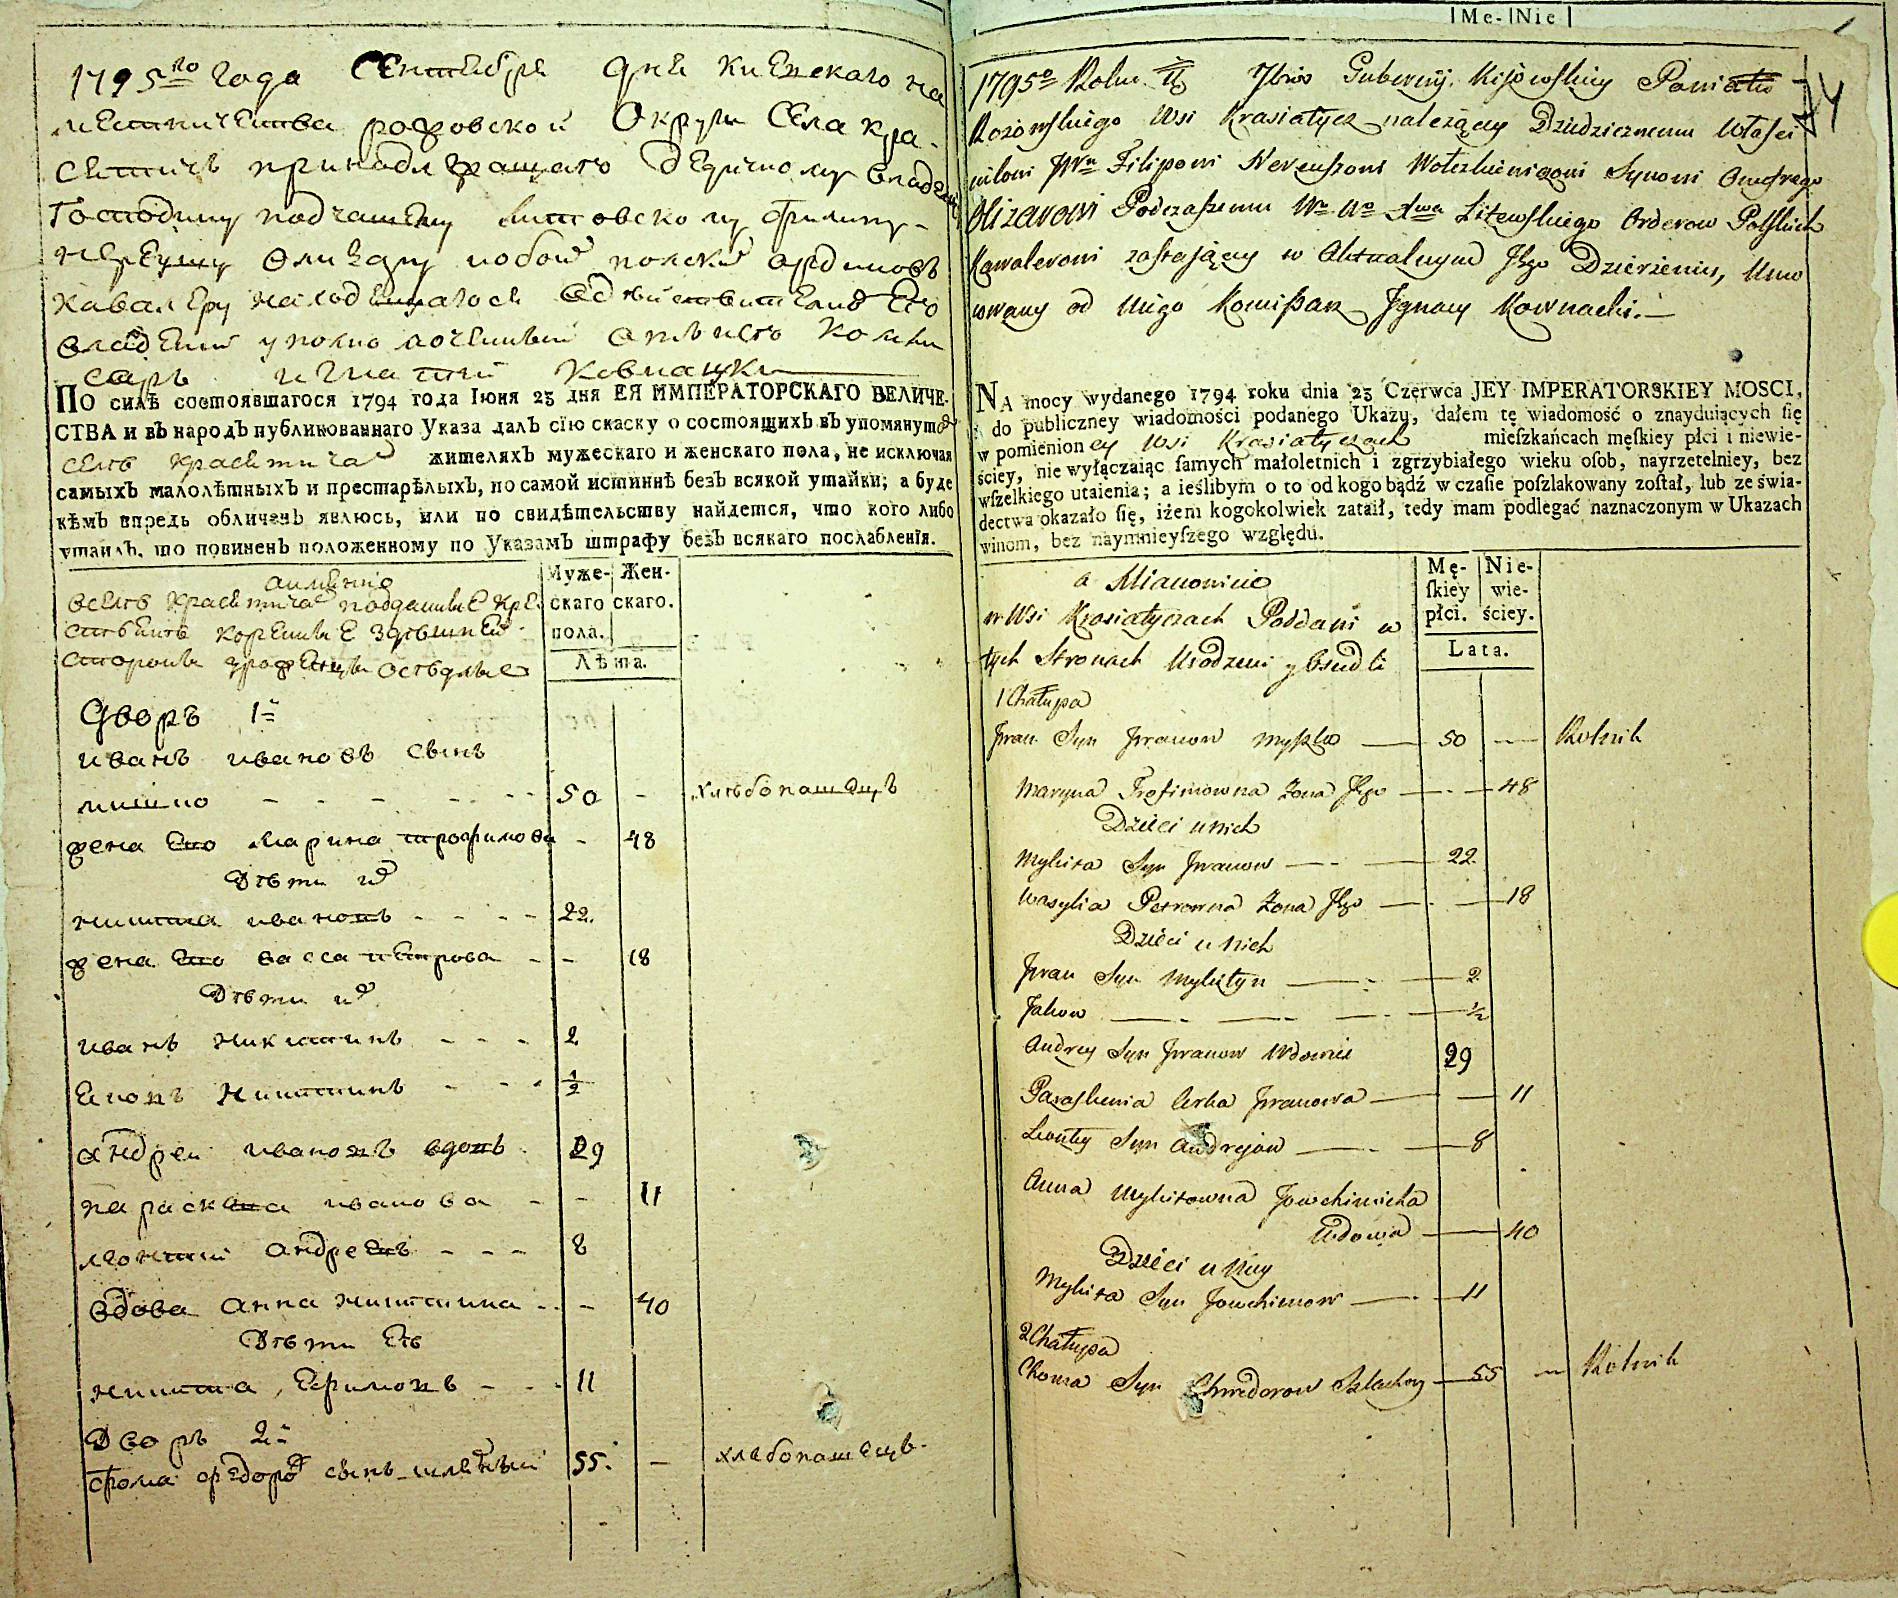 1795го года Сентября дня Киевскаго на
местничества радовской Округи Села кра-
сятичь принадлежащаго Дедичному владельцу
Господину подчашему Литовскому Филипу
Нереушу Олизару обоих полских ординовъ
Кавалеру находящагося в действительном Его
владении уполномоченный от него Коми
саръ игнатий Ковнацки
ПО силѣ состоявшагося 1794 года Іюня 23 дня ЕЯ ИМПЕРАТОРСКАГО ВЕЛИЧЕ-
СТВА и въ народъ публикованнаго Указа далъ сїю скаску о состоящихъ въ упомянутом
селѣ Красятичах жителяхъ мужескаго и женскаго пола, не исключая
самыхъ малолѣтныхъ и престарѣлыхъ, по самой истиннѣ безъ всякой утайки; а буде
кѣмъ впредь обличенъ явлюсь, или по свидѣтельству найдется, что кого либо
утаилъ, то повиненъ положенному по Указамъ штрафу безъ всякаго послабленїя.
а имянно
вселѣ Красятичах подданные кре
стьяне коренные здѣшней
стороны уроженцы оседлые
Муже- Жен-
скаго скаго.
пола.
Лѣта.
Дворъ 1й
иванъ ивановъ сынъ
мишко - - - 50 - хлѣбопашецъ
жена Его Марина трофимова - 48
Дѣти их
никита ивановъ - - - 22.
жена Его васса петрова - - 18
Дѣти их
иванъ никитинъ - - - 2
Никитинъ - - - 1/2
андреи ивановъ вдовъ 29
параскева иванова - - 11
леонтий андреевъ - - - 8
вдова анна никитина - - 40
Дѣти Еѣ
никита Ефимовъ - - - 11
Дворъ 2й
Фома федоров сынъ 55. - хлебопашецъ
|Me-|Nie|
1795o Roku 7bra Gubernij Kijowskiey Powiatu
Rożowskiego Wsi Krasiatycz należącey Dziedzicznemu Właści
cielowi JWu Filipowi Nereuszowi Onufrego
Olizarowi Podczaszemu Wo Wo Xwa Litewskiego Orderow Polskich
Kawalerowi zostającey w Aktualnym Jego Dzierżeniu, Umo
cowany od niego Komissarz Jgnacy Kownacki.—
NA mocy wydanego 1794 roku dnia 23 Czerwca JEY IMPERATORSKIEY MOSCI,
do publiczney wiadomości podanego Ukazu, dałem tę wiadomość o znayduiących ſię
w pomienioney Wsi Krasiatyczach mieſzkańcach męſkiey płci i niewie-
ściey, nie wyłączaiąc ſamych małoletnich i zgrzybiałego wieku oſob, nayrzetelniey, bez
wſzelkiego utaienia; a ieślibym o to od kogo bądź w czaſie poſzlakowany zoſtał, lub ze świa-
dectwa okazało ſię, iżem kogokolwiek zataił, tedy mam podlegać naznaczonym w Ukazach
winom, bez naymnieyſzego względu.
a Mianowicie
w Wsi Krasiatyczach Poddani w
tych Stronach Urodzeni y Osiedli
Mę- Nie-
ſkiey wie-
płci. ściey.
Lata.
1 Chałupa
Jwan Syn Jwanow Myszko — 50 — Rolnik
Maryna Trofimowna Żona Jego — 48
Dzieci u nich
Mykita Syn Jwanow — 22
Wasylia Petrowna Żona Jego — 18
Dzieci u Nich
Jwan Syn Mykityn — 2
Jakow — 1/2
Andrey Syn Jwanow Wdowiec 29
Paraskewia Corka Jwanowa — 11
Leontey Syn Andrejow — 8
Anna Mykitowna Jowchimicha
Wdowa — 40
Dzieci u Niey
Mykita Syn Jowchimow — 11
2 Chałupa
Choma Syn Chwedorow — 55 — Rolnik